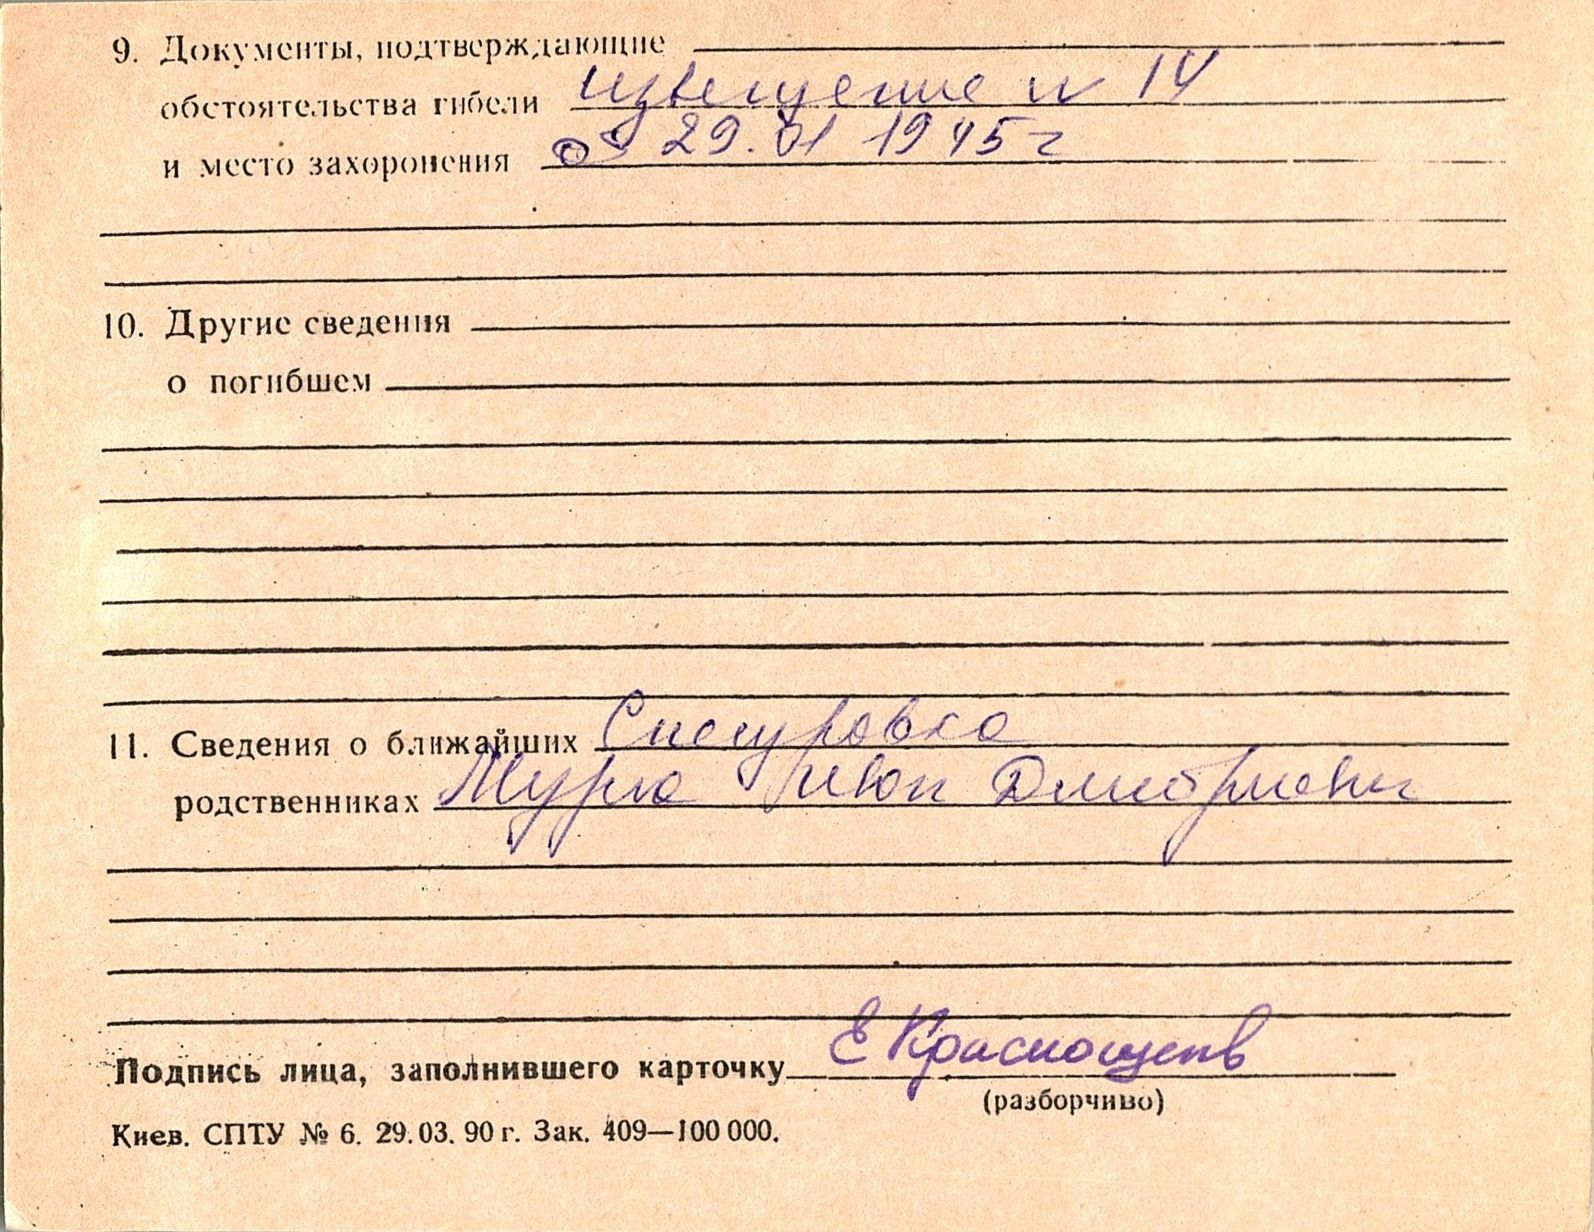 9. Документы, подтверждающие
обстоятельства гибели извещение N 14
от 29.01 1945 г
и место захоронения
10. Другие сведения
о погибшем
11. Сведения о ближайших Снегуровка
родственниках Иван Дмитриевич
Подпись лица, заполнившего карточку Е
(разборчиво)
Киев. СПТУ № 6. 29.03.90 г. Зак. 409—100 000.